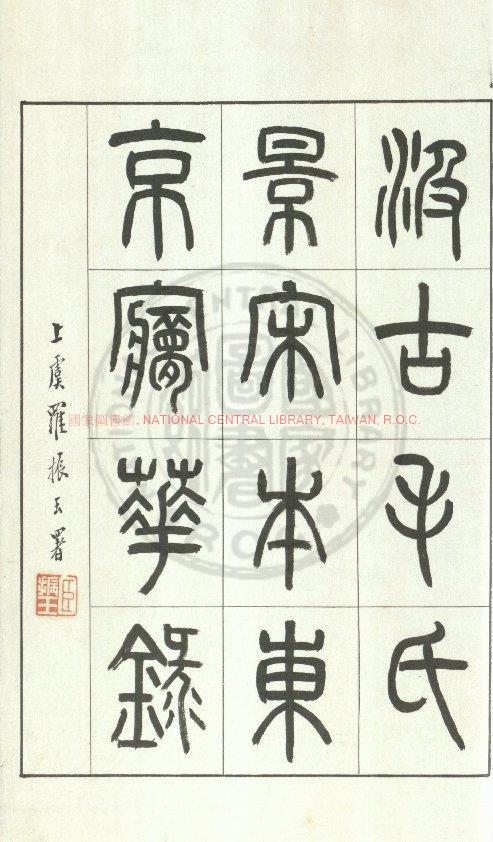 汲古毛氏
景宋本東
京㝱華錄
上虞羅振玉署
臣振玉
國家圖書館, NATIONAL CENTRAL LIBRARY, TAIWAN, R.O.C.